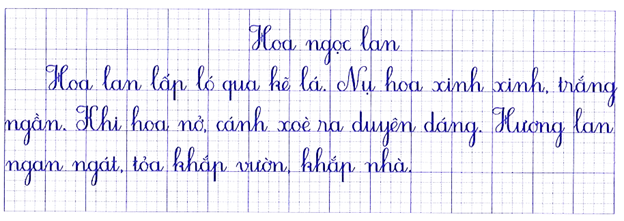 Hoa ngọc lan
Hoa lan lấp ló qua kẽ lá. Nụ hoa xinh xinh, trắng
ngần. Khi hoa nở, cánh xoè ra duyên dáng. Hương lan
ngan ngát, tỏa khắp vườn, khắp nhà.